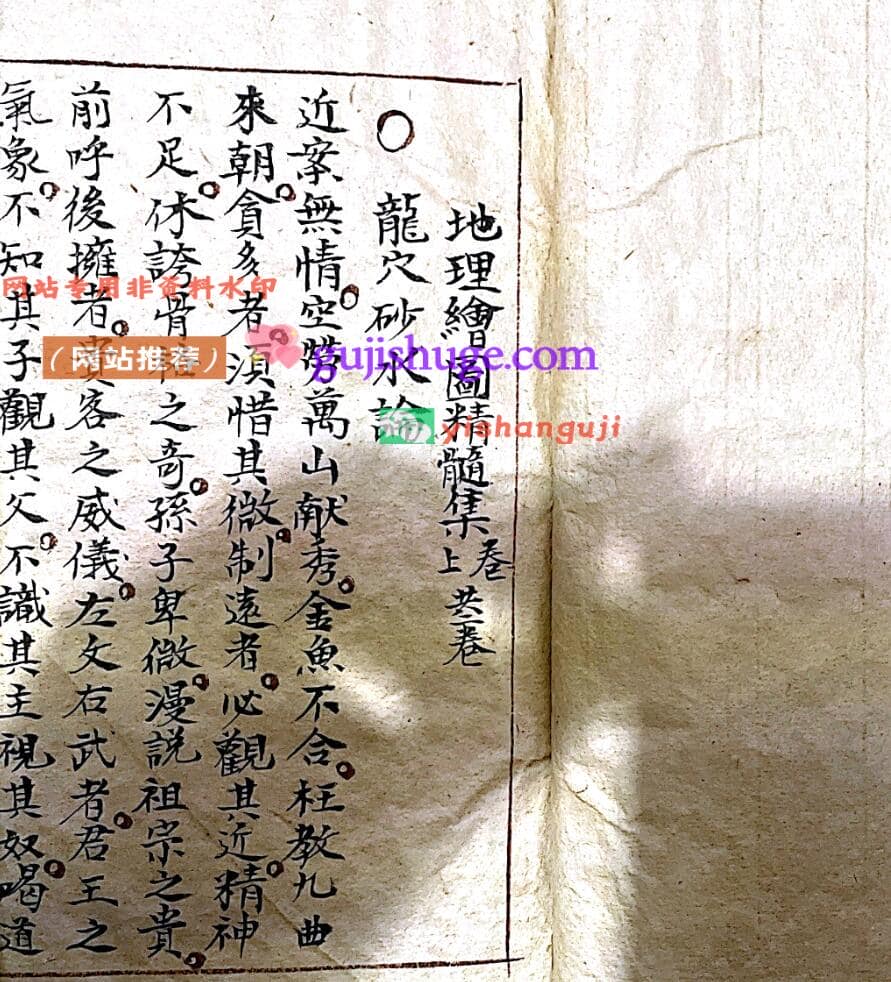 地理繪圖精髓集 卷上 卷
○ 龍穴砂水論
近案無情。空勞萬山献秀。金魚不合。枉教九曲
來朝。貪多者。須惜其微。制遠者。必觀其近。精神
不足。休誇骨格之奇。孫子卑微。漫說祖宗之貴。
前呼後擁者。貴客之威儀。左文右武者。君王之
氣象。不知其子觀其父。不識其主視其奴。喝道
网站专用非资料水印
（网站推荐）
gujishuge.com
yishanguji